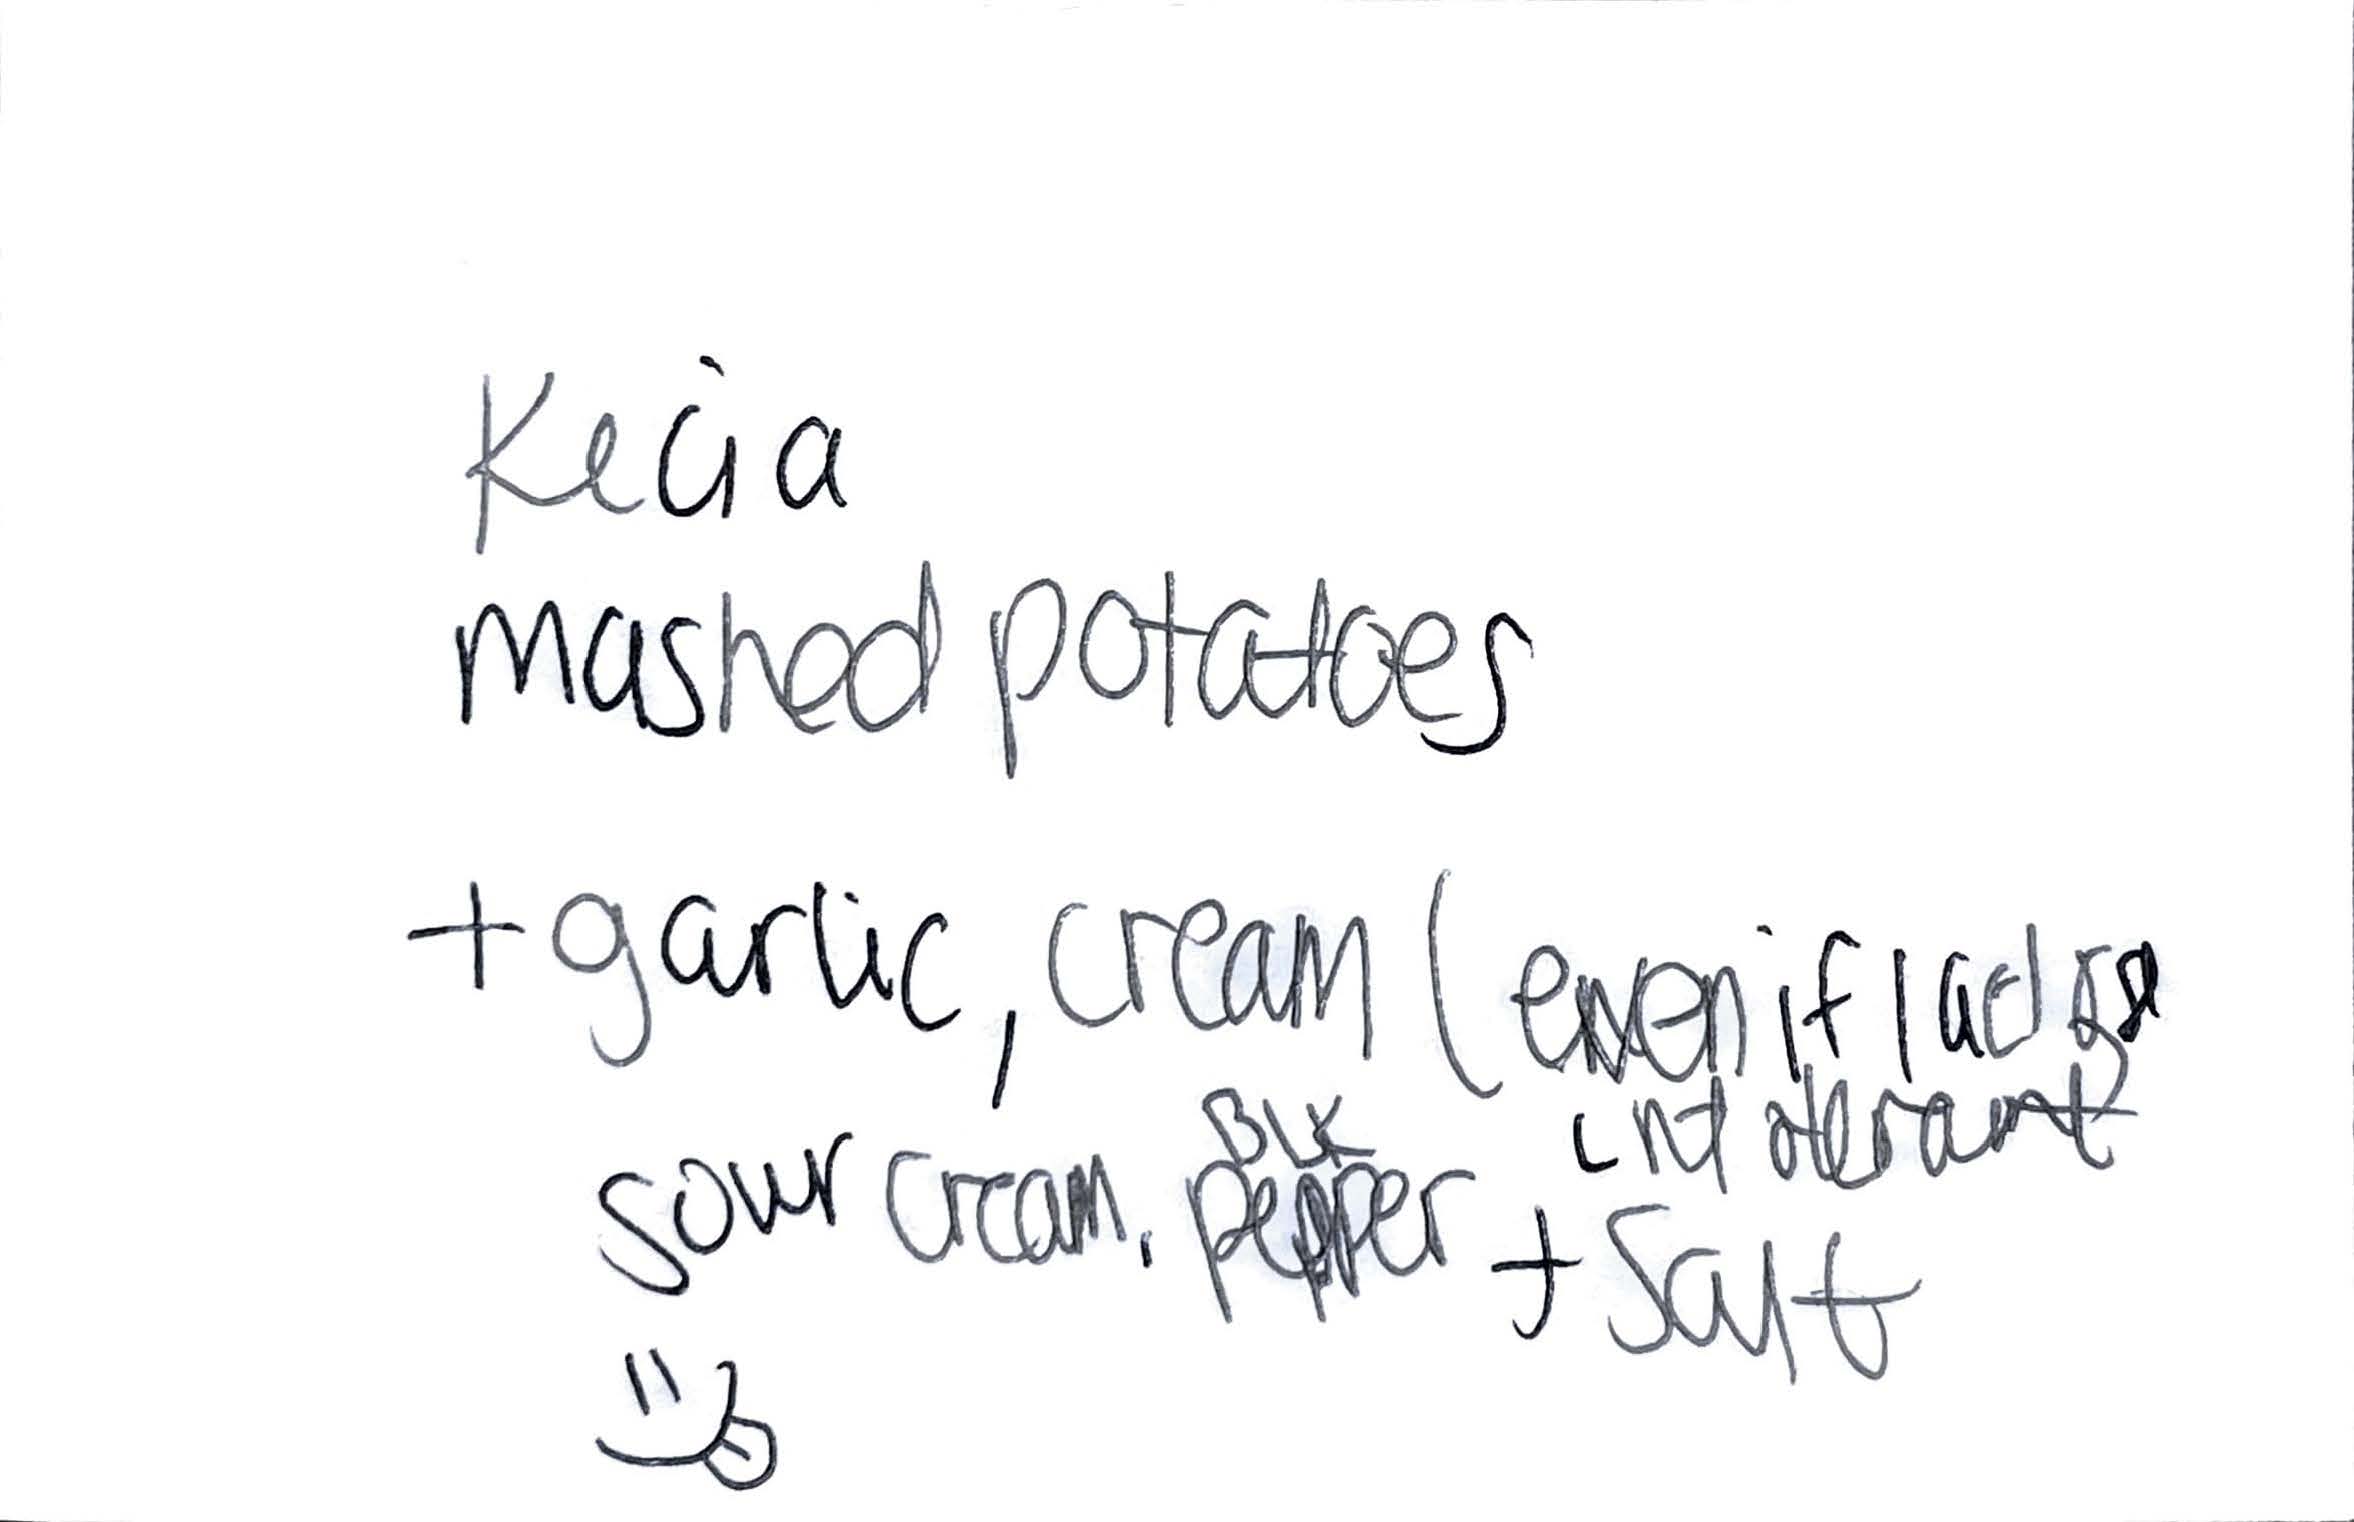 Kecia
mashed potatoes
+ garlic, cream (even if lactose
intolerant)
sour cream, BLK pepper + Salt